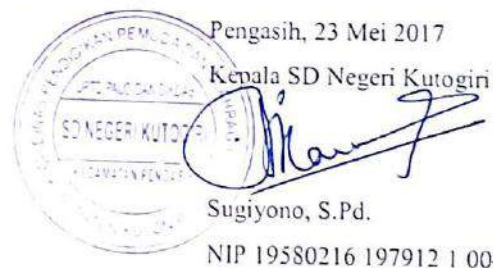 Pengasih, 23 Mei 2017
Kepala SD Negeri Kutogiri
PENDIDIKAN PEMUDA DAN
UPTD PAUD DAN DIKDAS
SD NEGERI KUTOGIRI
KECAMATAN PENGASIH
Sugiyono, S.Pd.
NIP 19580216 197912 1 00